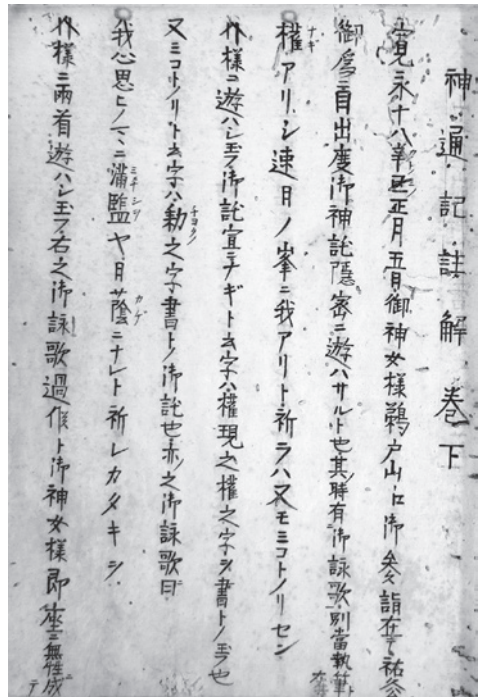 神通記註解巻下
寛永十八辛巳正月五日御神女様鵜戸山ニ御参詣在テ祐久
御為ニ目出度御神託隠密ニ遊ハサルト也其時有御詠歌別当執筆ト
権アリシ速日ノ峯ニ我アリト祈ラハ又モミコトノリセン
ナギ
カ様ニ遊ハシ玉フ御託宣ニナギト云字ハ権現之権之字ヲ書トノ玉フ也
又ミコトノリト云字ハ勅之字書トノ御託也亦之御詠歌曰
チヨクノ
我心思ヒノママニ満塩ヤ月蔭ニナレト祈レカタキシ
ミチシツ
カゲ
カ様ニ両首遊ハシ玉フ右之御詠歌過作ト御神女様即座ニ無性成テ